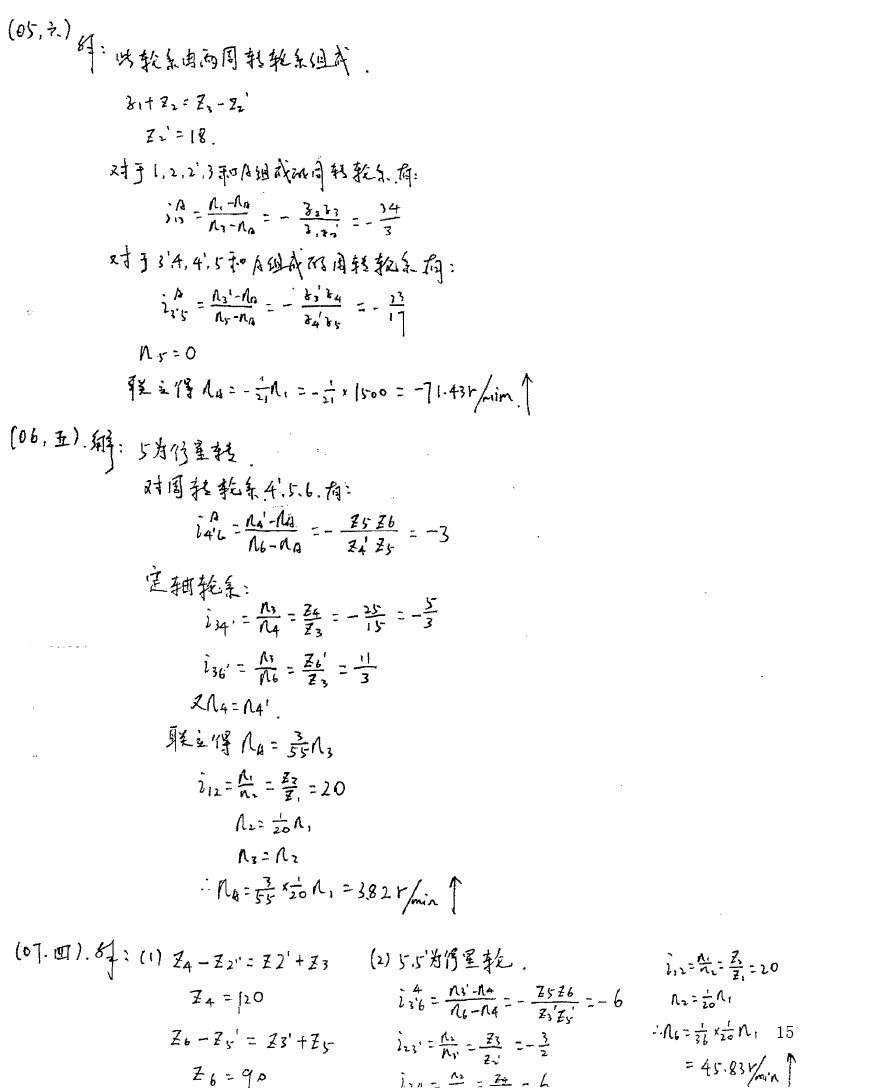 (05,六)
解：此轮系由两周转轮系组成.
z₁+z₂=z₃-z₂'
z₂'=18.
对于1,2,2',3和A组成的周转轮系.有:
i₁₃ᴬ=(n₁-nA)/(n₃-nA)=-(z₂z₃)/(z₁z₂')=-34/3
对于3'4,4',5和A组成的周转轮系有:
i₃'₅ᴬ=(n₃'-nA)/(n₅-nA)=-(z₃'z₄)/(z₄'z₅)=-23/17
n₅=0
联立得 nA=-1/21 n₁=-1/21×1500=-71.43r/min.↑
(06,五).解: 5为行星转.
对周转轮系4'.5.6.有:
i₄'₆ᴬ=(n₄'-nA)/(n₆-nA)=-(z₅z₆)/(z₄'z₅)=-3
定轴轮系:
i₃₄'=n₃/n₄=z₄/z₃=-25/15=-5/3
i₃₆'=n₃/n₆=z₆'/z₃=11/3
又n₄=n₄'.
联立得 nA=3/55 n₃
i₁₂=n₁/n₂=z₂/z₁=20
n₂=1/20 n₁
n₃=n₂
∴nA=3/55×1/20 n₁=3.82r/min ↑
(07.四).解:(1) z₄-z₂''=z2'+z₃
z₄=120
z₆-z₅'=z3'+z₅
z₆=90
(2) 5.5'为行星轮.
i₃'₆⁴=(n₃'-n₄)/(n₆-n₄)=-(z₅z₆)/(z₃'z₅')=-6
i₂₃'=n₂/n₃'=z₃/z₂'=-3/2
i₁₂=n₁/n₂=z₂/z₁=20
n₂=1/20 n₁
∴n₆=1/36×1/20 n₁
=45.83r/min ↑
15